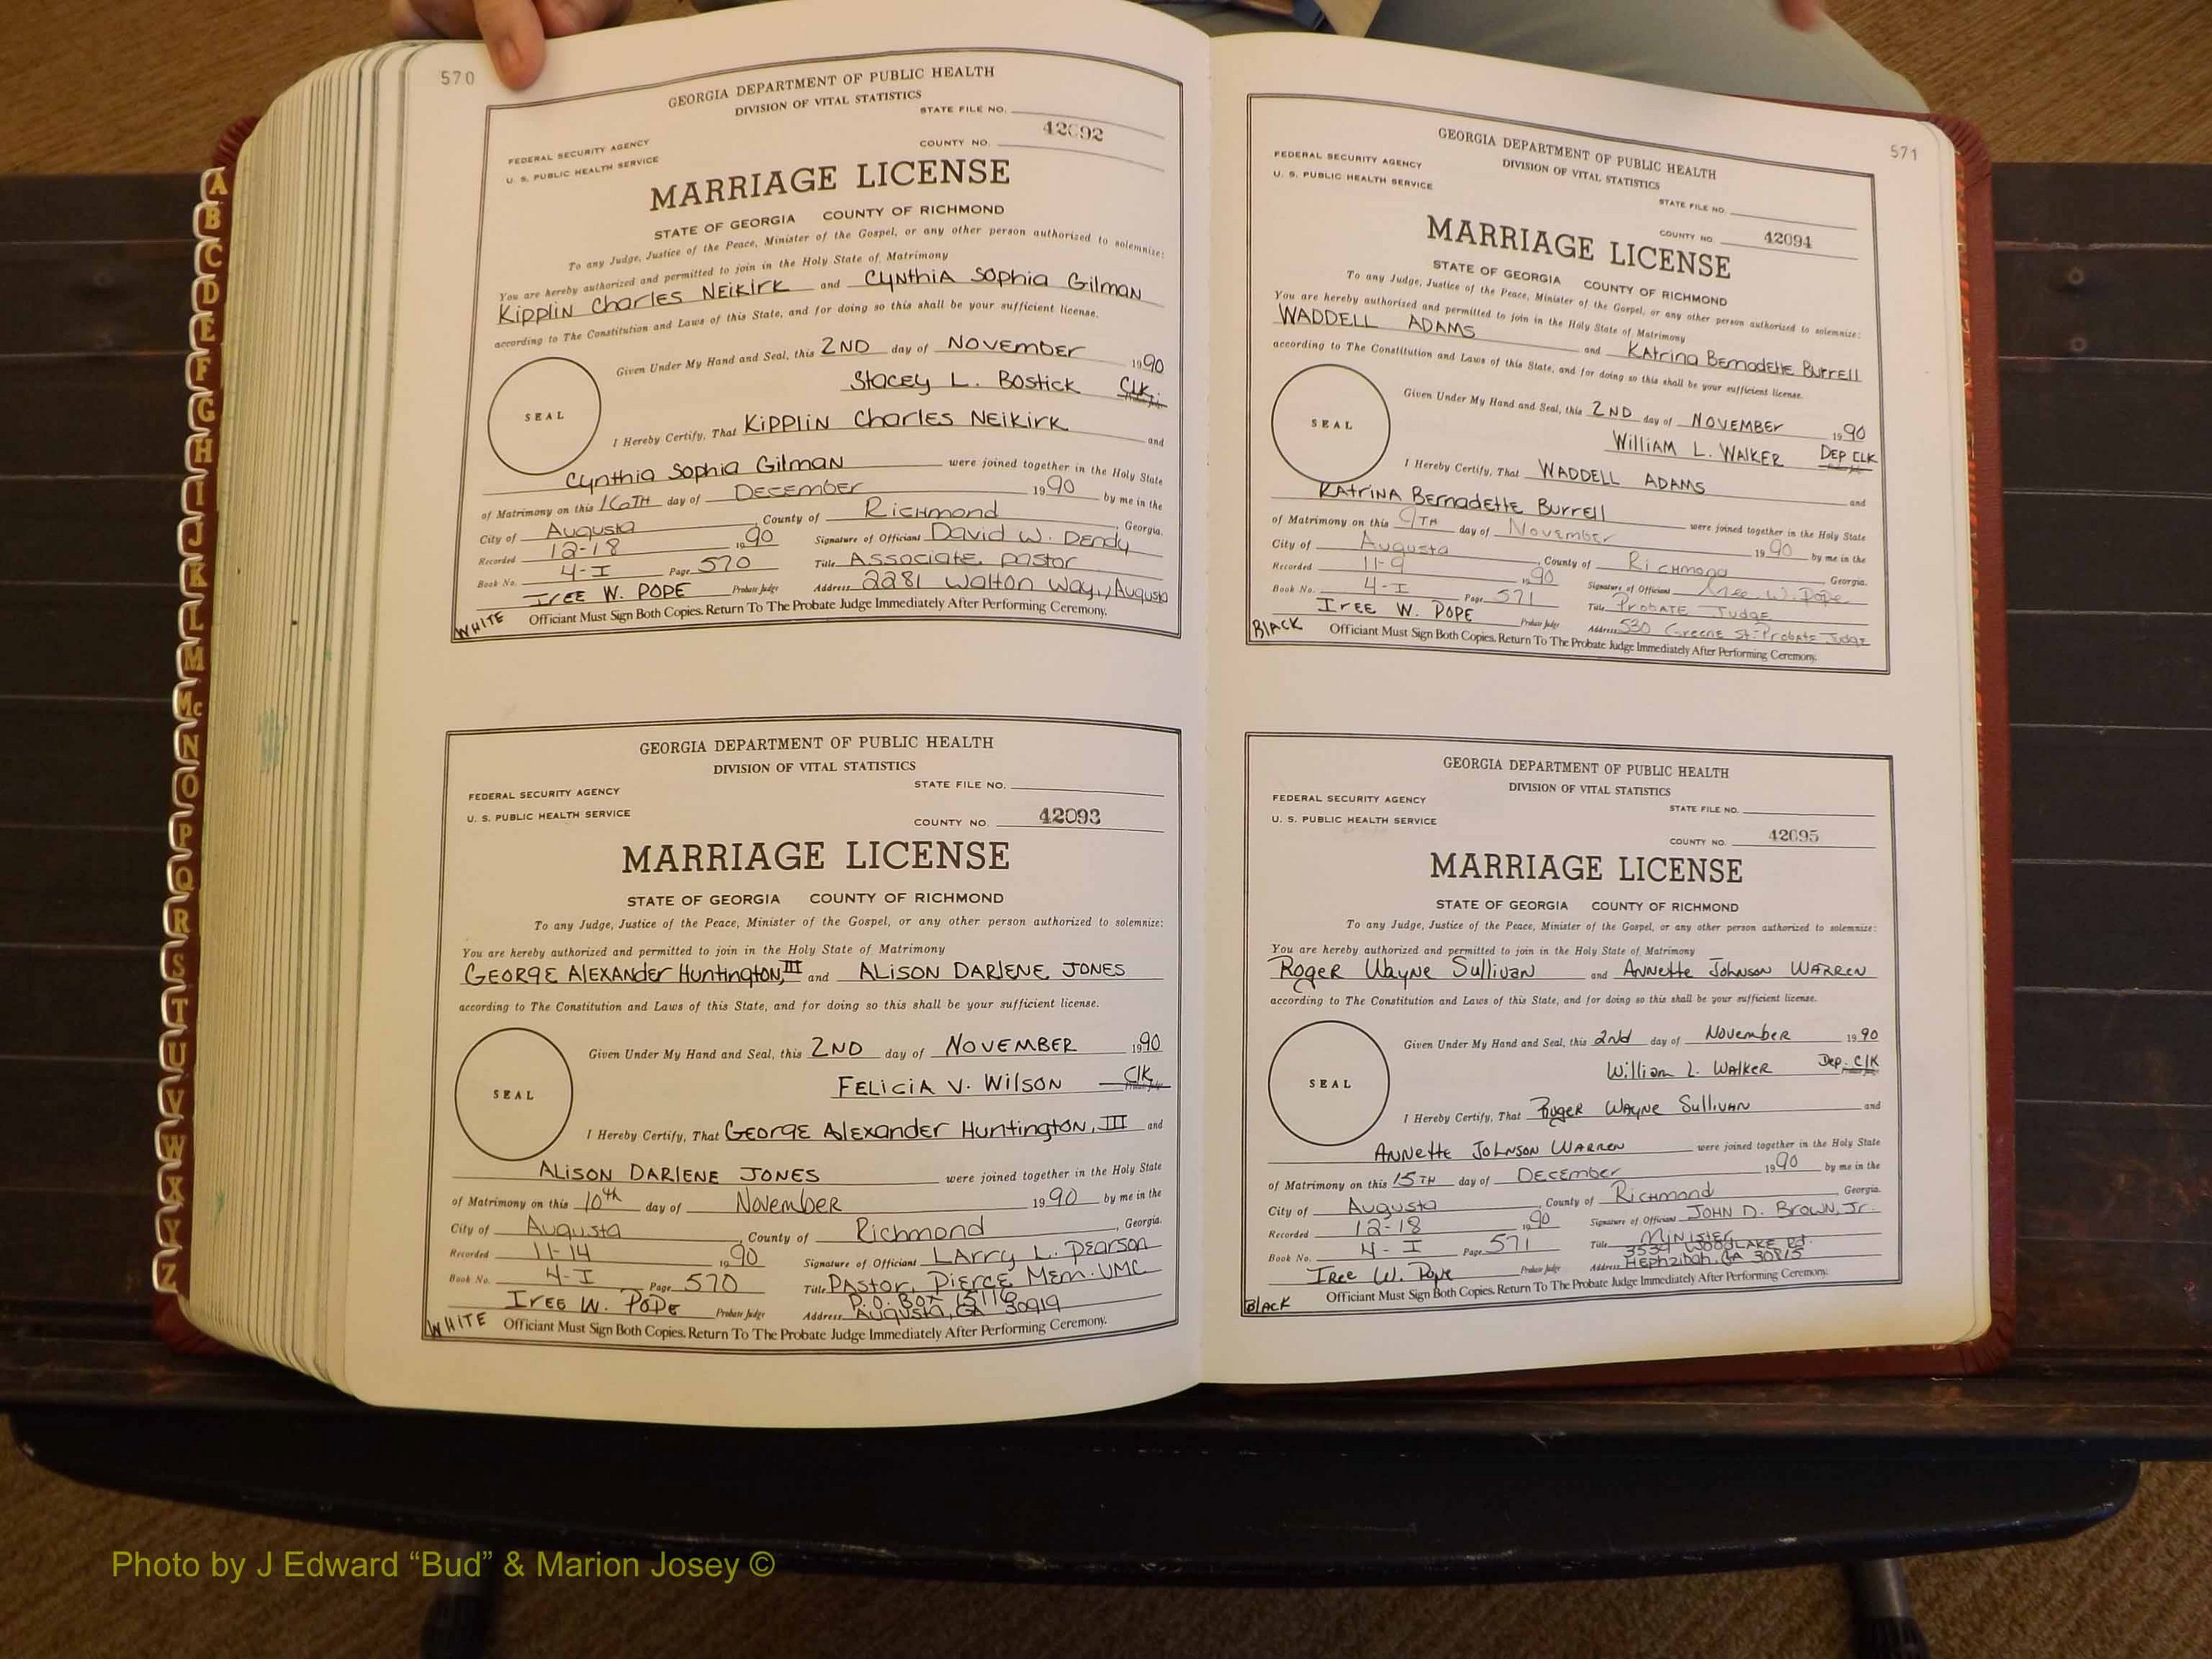 570
GEORGIA DEPARTMENT OF PUBLIC HEALTH
DIVISION OF VITAL STATISTICS
STATE FILE NO.
FEDERAL SECURITY AGENCY
U. S. PUBLIC HEALTH SERVICE
COUNTY NO. 42092
MARRIAGE LICENSE
STATE OF GEORGIA COUNTY OF RICHMOND
To any Judge, Justice of the Peace, Minister of the Gospel, or any other person authorized to solemnize:
You are hereby authorized and permitted to join in the Holy State of Matrimony
Kipplin Charles NEikirk and CyNthiA Sophia GilmaN
according to The Constitution and Laws of this State, and for doing so this shall be your sufficient license.
Given Under My Hand and Seal, this 2ND day of NOVEMBER 1990
Stacey L. Bostick Clk.
SEAL
I Hereby Certify, That Kipplin Charles NEikirk and
Cynthia Sophia GilmaN were joined together in the Holy State
of Matrimony on this 16TH day of DECEMBER 1990 by me in the
City of Augusta, County of Richmond, Georgia.
Recorded 12-18 1990 Signature of Officiant David W. Dendy
Book No. 4-I Page 570 Title Associate Pastor
Iree W. Pope Probate Judge Address 2281 Walton Way, Augusta
WHITE Officiant Must Sign Both Copies. Return To The Probate Judge Immediately After Performing Ceremony.
GEORGIA DEPARTMENT OF PUBLIC HEALTH
DIVISION OF VITAL STATISTICS
STATE FILE NO.
FEDERAL SECURITY AGENCY
U. S. PUBLIC HEALTH SERVICE
COUNTY NO. 42093
MARRIAGE LICENSE
STATE OF GEORGIA COUNTY OF RICHMOND
To any Judge, Justice of the Peace, Minister of the Gospel, or any other person authorized to solemnize:
You are hereby authorized and permitted to join in the Holy State of Matrimony
GEORGE AlExANder HuntingtoN, III and ALiSON DARlENE JONES
according to The Constitution and Laws of this State, and for doing so this shall be your sufficient license.
Given Under My Hand and Seal, this 2ND day of NOVEMBER 1990
FELiciA V. Wilson Clk.
SEAL
I Hereby Certify, That George Alexander Huntington, III and
ALiSON DARlENE JONES were joined together in the Holy State
of Matrimony on this 10th day of November 1990 by me in the
City of Augusta, County of Richmond, Georgia.
Recorded 11-14 1990 Signature of Officiant LArry L. Pearson
Book No. 4-I Page 570 Title Pastor, Pierce Mem. UMC
Iree W. Pope Probate Judge Address P.O. Box 15116
Augusta, GA 30919
WHITE Officiant Must Sign Both Copies. Return To The Probate Judge Immediately After Performing Ceremony.
571
GEORGIA DEPARTMENT OF PUBLIC HEALTH
DIVISION OF VITAL STATISTICS
FEDERAL SECURITY AGENCY
U. S. PUBLIC HEALTH SERVICE
STATE FILE NO.
COUNTY NO. 42094
MARRIAGE LICENSE
STATE OF GEORGIA COUNTY OF RICHMOND
To any Judge, Justice of the Peace, Minister of the Gospel, or any other person authorized to solemnize:
You are hereby authorized and permitted to join in the Holy State of Matrimony
WADDELL ADAMS and KAtrina Bernadette Burrell
according to The Constitution and Laws of this State, and for doing so this shall be your sufficient license.
Given Under My Hand and Seal, this 2ND day of NOVEMBER 1990
William L. Walker Dep Clk
SEAL
I Hereby Certify, That WADDELL ADAMS and
KAtriNA Bernadette Burrell were joined together in the Holy State
of Matrimony on this 9TH day of November 1990 by me in the
City of Augusta, County of Richmond, Georgia.
Recorded 11-9 1990 Signature of Officiant Iree W. Pope
Book No. 4-I Page 571 Title Probate Judge
Iree W. Pope Probate Judge Address 530 Greene St-Probate Judge
BlACK Officiant Must Sign Both Copies. Return To The Probate Judge Immediately After Performing Ceremony.
GEORGIA DEPARTMENT OF PUBLIC HEALTH
DIVISION OF VITAL STATISTICS
FEDERAL SECURITY AGENCY
U. S. PUBLIC HEALTH SERVICE
STATE FILE NO.
COUNTY NO. 42095
MARRIAGE LICENSE
STATE OF GEORGIA COUNTY OF RICHMOND
To any Judge, Justice of the Peace, Minister of the Gospel, or any other person authorized to solemnize:
You are hereby authorized and permitted to join in the Holy State of Matrimony
Roger Wayne Sullivan and Annette Johnson Warren
according to The Constitution and Laws of this State, and for doing so this shall be your sufficient license.
Given Under My Hand and Seal, this 2nd day of November 1990
William L. Walker Dep. Clk
SEAL
I Hereby Certify, That Roger Wayne Sullivan and
Annette Johnson Warren were joined together in the Holy State
of Matrimony on this 15TH day of December 1990 by me in the
City of Augusta, County of Richmond, Georgia.
Recorded 12-18 1990 Signature of Officiant John D. Brown, Jr.
Book No. 4-I Page 571 Title Minister
Iree W. Pope Probate Judge Address 3534 Woodlake Rd.
Hephzibah, GA 30815
BlACK Officiant Must Sign Both Copies. Return To The Probate Judge Immediately After Performing Ceremony.
A
B
C
D
E
F
G
H
I
J
K
L
M
Mc
N
O
P
Q
R
S
T
U
V
W
X
Y
Z
Photo by J Edward “Bud” & Marion Josey ©